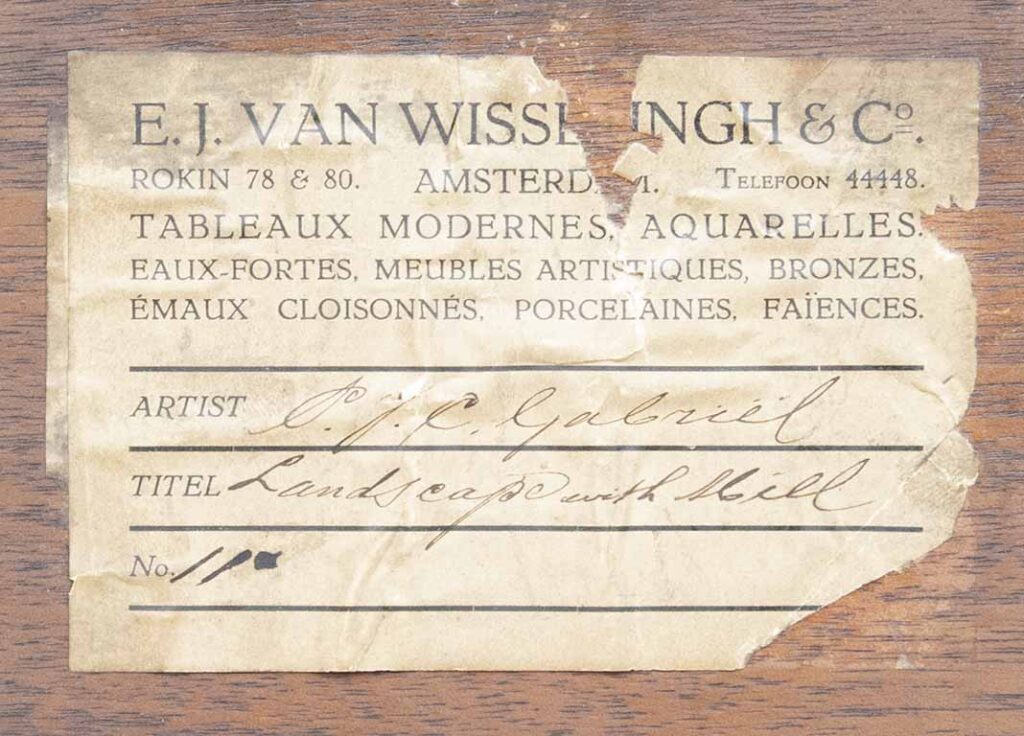 E. J. VAN WISSE INGH & Co.
ROKIN 78 & 80. AMSTERD M. TELEFOON 44448.
TABLEAUX MODERNES, AQUARELLES.
EAUX-FORTES, MEUBLES ARTISTIQUES, BRONZES,
ÉMAUX CLOISONNÉS, PORCELAINES, FAÏENCES.
ARTIST P. J. C. Gabriël
TITEL Landscape with Mill
No. 11